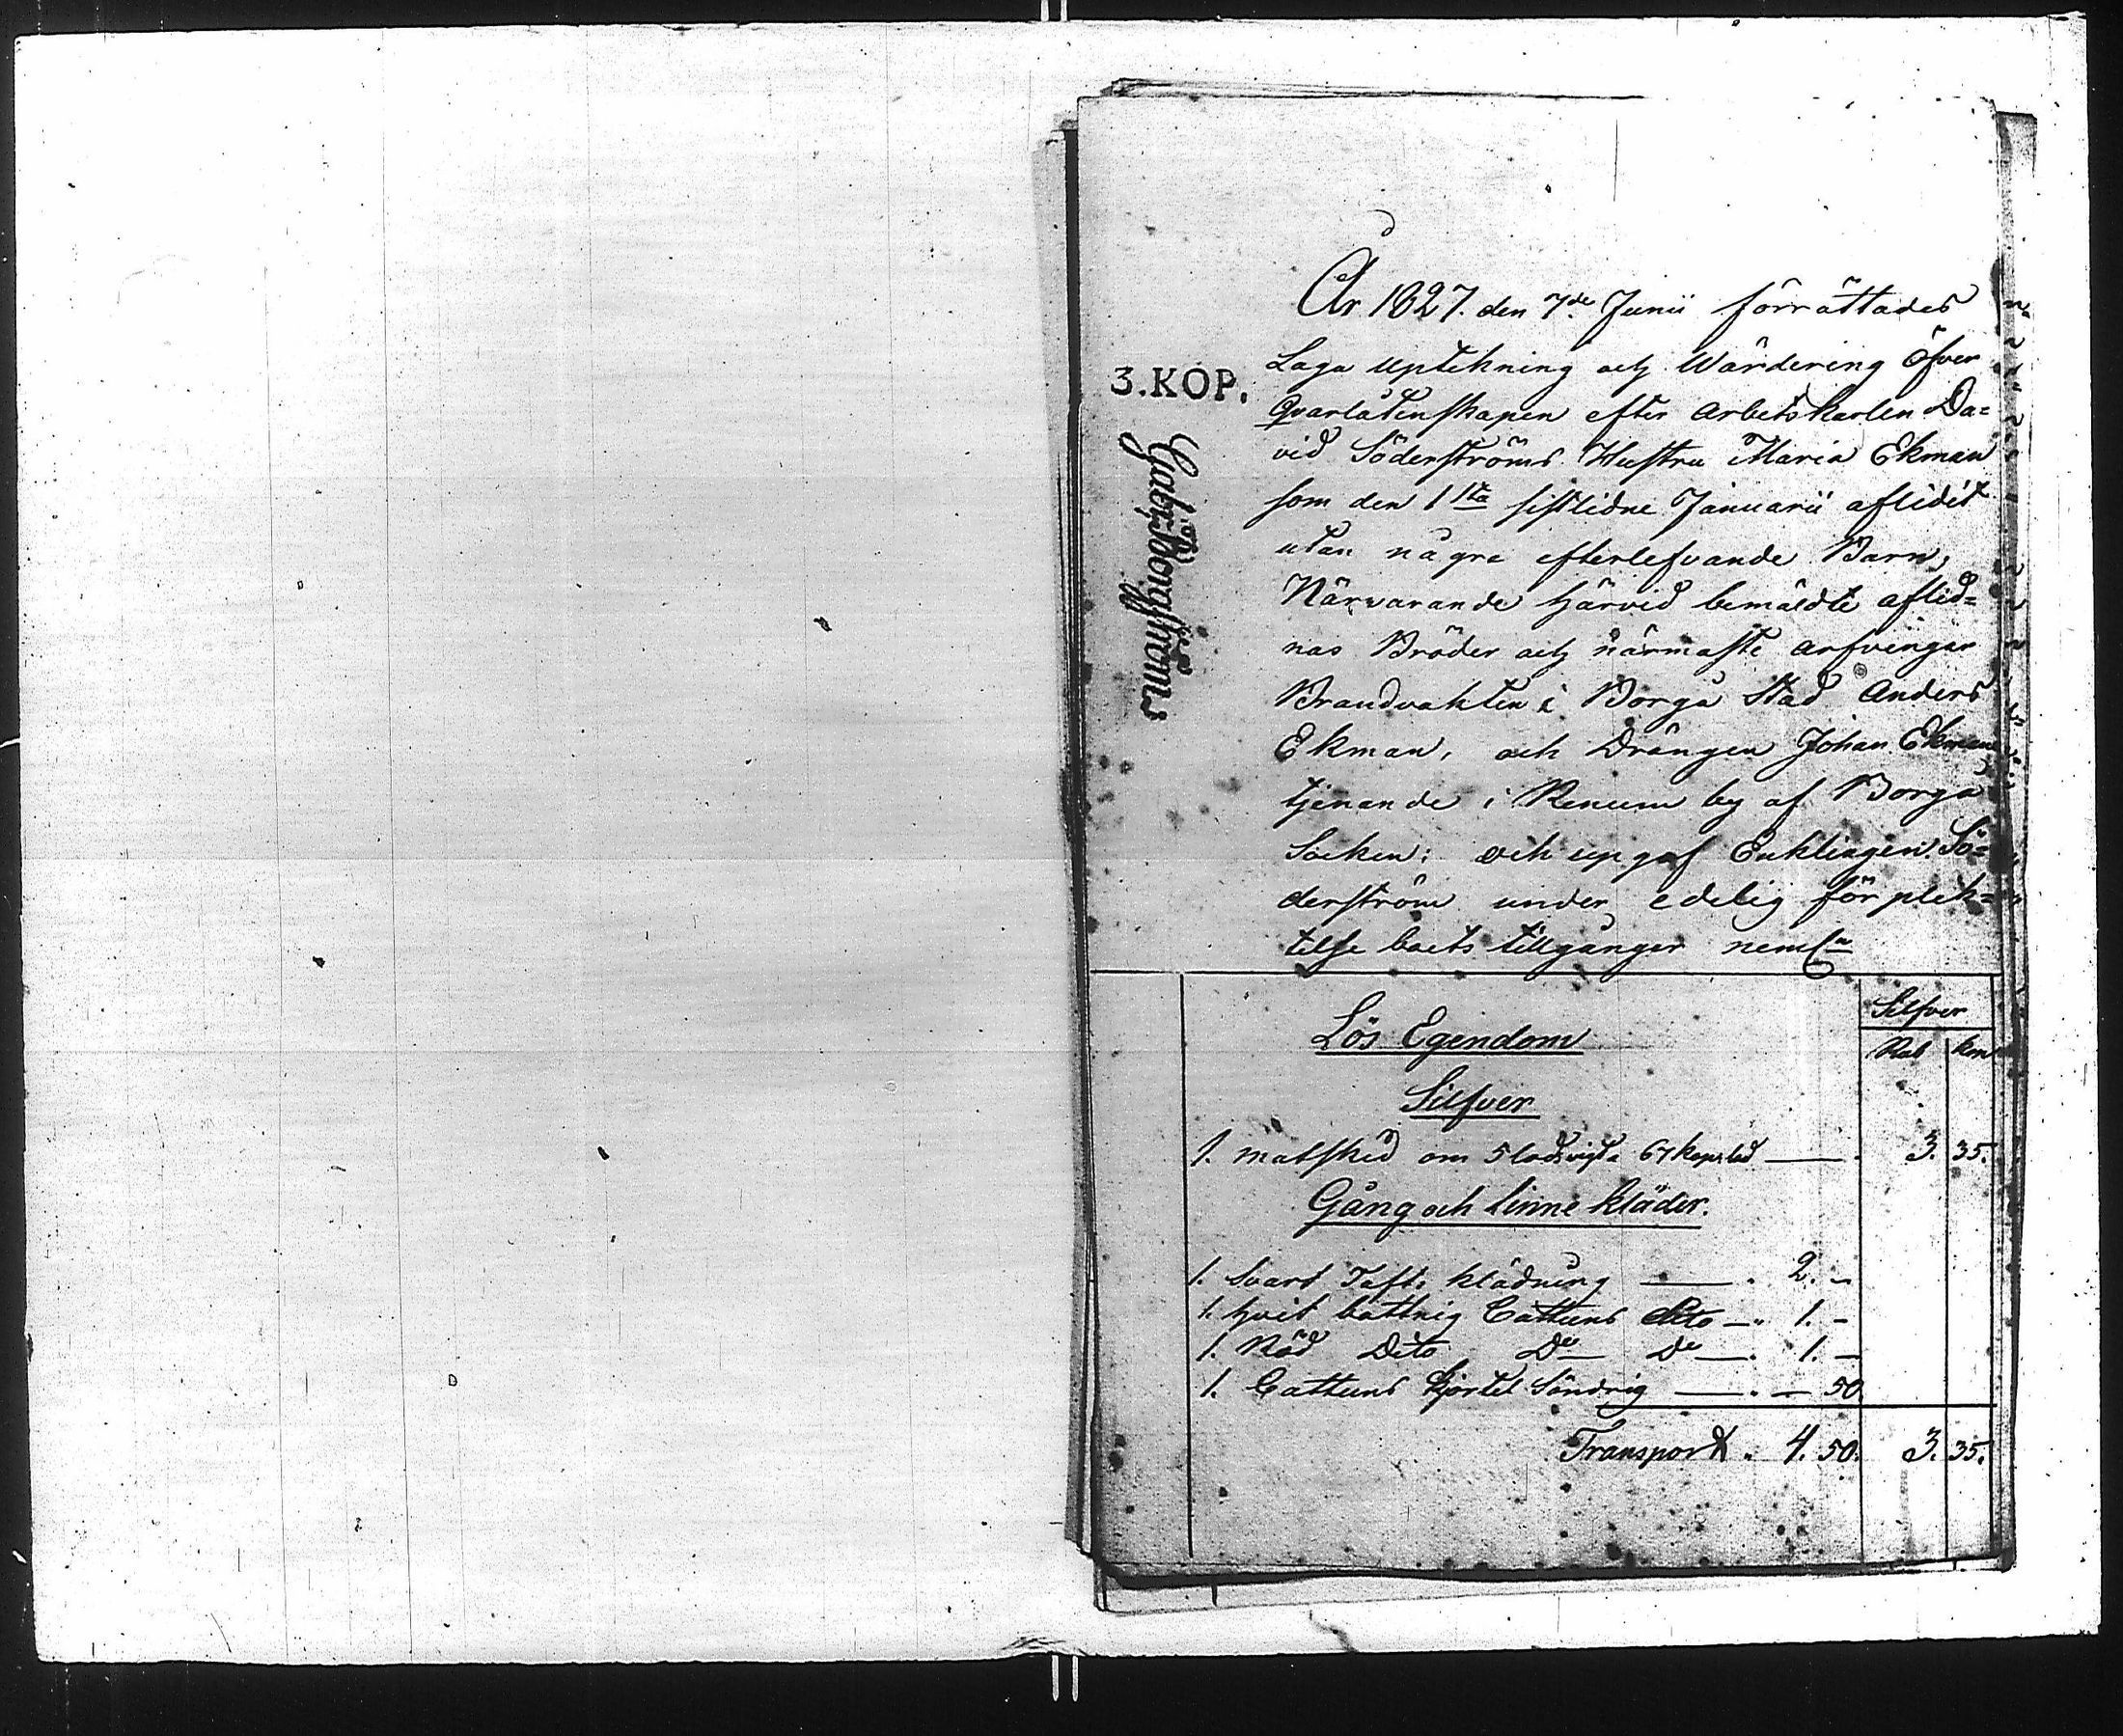 År 1827. den 7de Junii förrättades
Laga Uptekning och Wärdering öfver
3. KOP.
Qvarlåtenskapen efter arbetskarlen Da=
vid Söderströms Hustru Maria Ekman
som den 1sta sistlidne Januarii aflidit
utan några efterlefvande Barn,
Närvarande härvid bemäldte aflid=
nas Bröder och närmaste arfvingar
Brandvakten i Borgå Stad Anders
Ekman, och Drängen Johan Ekman
tjenande i Renum by af Borgå
Socken; och uppgaf Enklingen Sö=
derström under edelig förplik=
telse boets tillgånger neml:n
Silfver
Lös Egendom
Rub kop
Silfver
1. matsked om 5 lods vigt a 67 kop lod — 3. 35.
Gång och linne kläder.
1. Svart Tafts klädning — 2. —
1. hvit bottnig Cattuns Dito — 1. —
1. Röd Dito Do Do — 1. —
1. Cattuns kjortel Söndrig — — 50
Transport 4. 50. 3. 35.